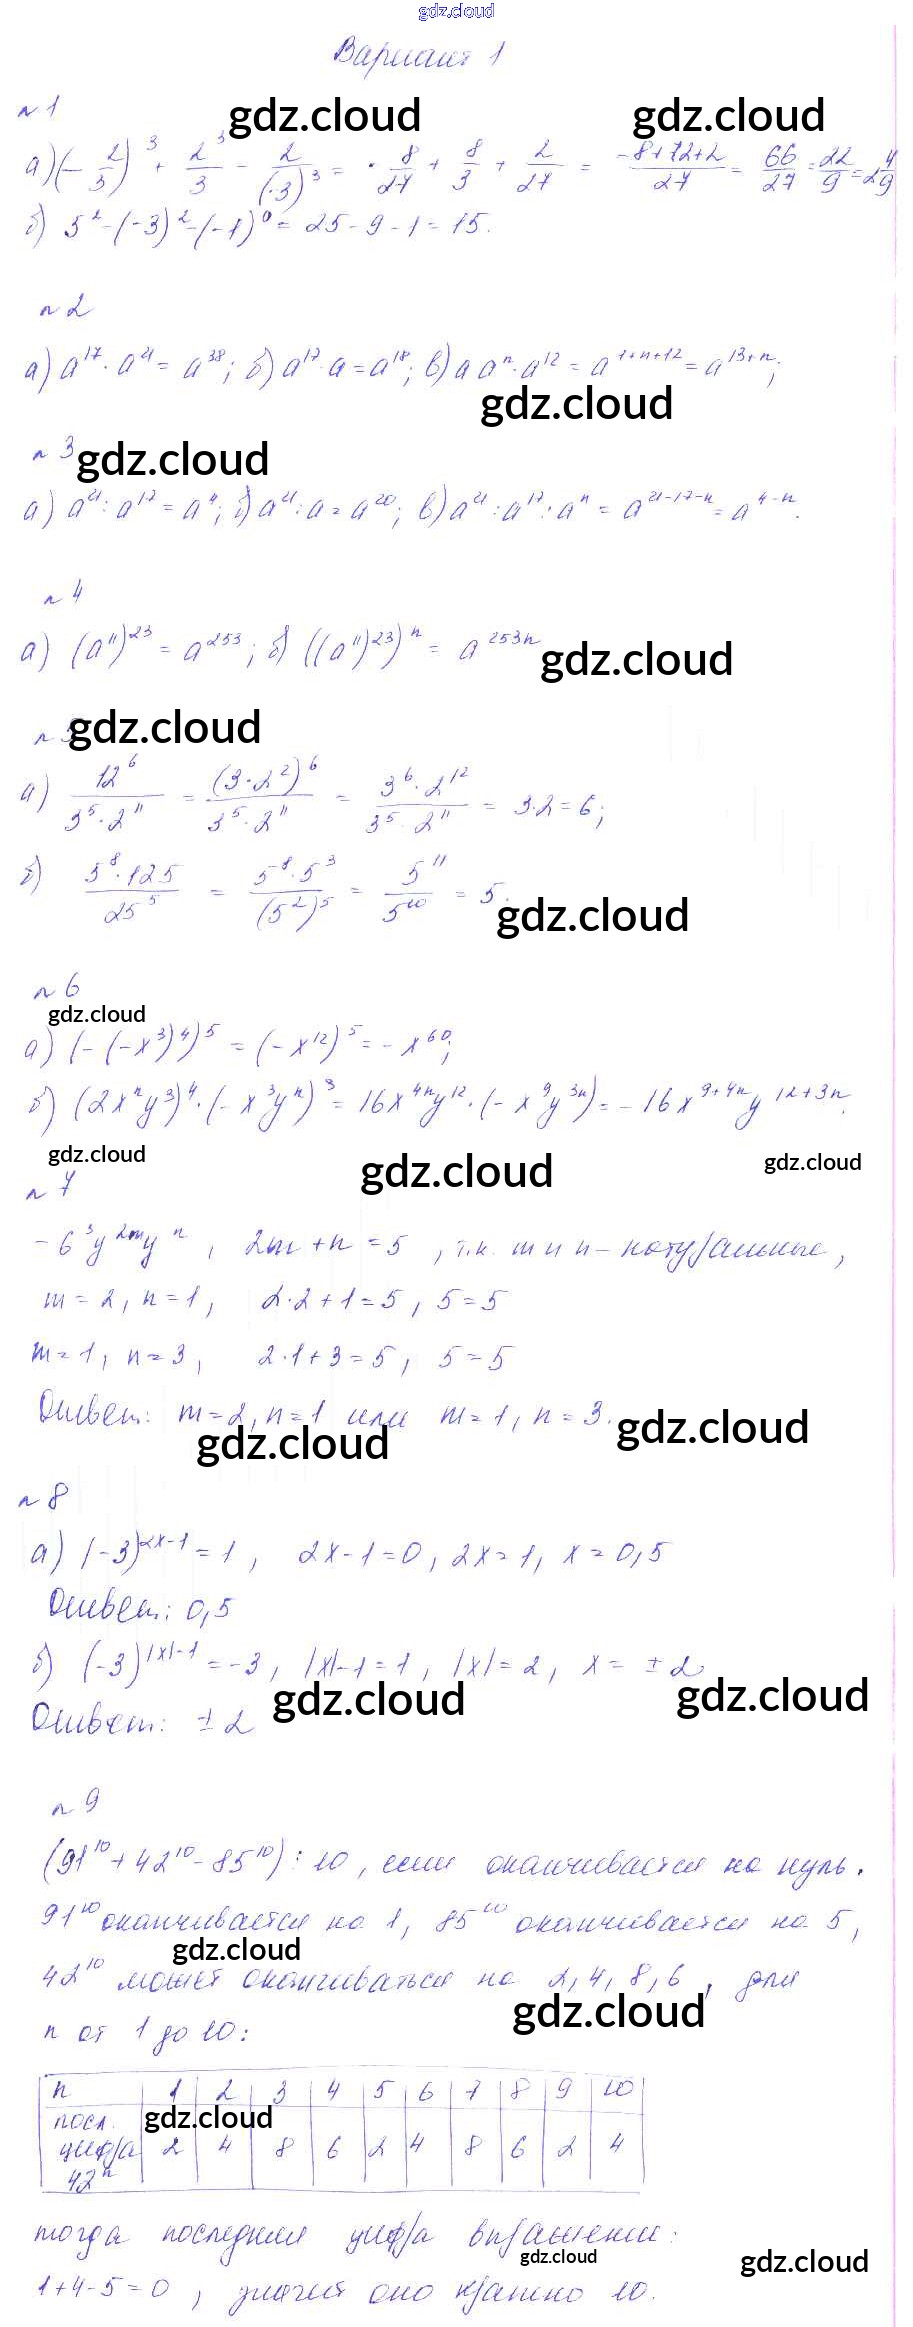 gdz.cloud
Вариант 1
n 1
gdz.cloud gdz.cloud
а) (-2/3)³ + 2³/3 - 2/(-3)³ = -8/27 + 8/3 + 2/27 = (-8+72+2)/27 = 66/27 = 22/9 = 2 4/9
б) 5² - (-3)² - (-1)⁰ = 25 - 9 - 1 = 15.
n 2
а) a¹⁷ · a²¹ = a³⁸; б) a¹⁷ · a = a¹⁸; в) a aⁿ · a¹² = a¹⁺ⁿ⁺¹² = a¹³⁺ⁿ;
gdz.cloud
n 3 gdz.cloud
а) a²¹ : a¹⁷ = a⁴; б) a²¹ : a = a²⁰; в) a²¹ : a¹⁷ : aⁿ = a²¹⁻¹⁷⁻ⁿ = a⁴⁻ⁿ.
n 4
а) (a¹¹)²³ = a²⁵³; б) ((a¹¹)²³)ⁿ = a²⁵³ⁿ
gdz.cloud
n 5 gdz.cloud
а) 12⁶/(3⁵ · 2¹¹) = (3 · 2²)⁶/(3⁵ · 2¹¹) = (3⁶ · 2¹²)/(3⁵ · 2¹¹) = 3 · 2 = 6;
б) (5⁸ · 125)/25⁵ = (5⁸ · 5³)/(5²)⁵ = 5¹¹/5¹⁰ = 5.
gdz.cloud
n 6
gdz.cloud
а) (-(-x³)⁴)⁵ = (-x¹²)⁵ = -x⁶⁰;
б) (2xⁿy³)⁴ · (-x³yⁿ)³ = 16x⁴ⁿy¹² · (-x⁹y³ⁿ) = -16x⁹⁺⁴ⁿy¹²⁺³ⁿ.
gdz.cloud gdz.cloud gdz.cloud
n 7
-6³y²ᵐyⁿ, 2m + n = 5, т.к. m и n - натуральные,
m = 2, n = 1, 2·2 + 1 = 5, 5 = 5
m = 1, n = 3, 2·1 + 3 = 5, 5 = 5
Ответ: m = 2, n = 1 или m = 1, n = 3.
gdz.cloud gdz.cloud
n 8
а) (-3)^(2x-1) = 1, 2x - 1 = 0, 2x = 1, x = 0,5
Ответ: 0,5
б) (-3)^(|x|-1) = -3, |x| - 1 = 1, |x| = 2, x = ±2
gdz.cloud gdz.cloud
Ответ: ±2
n 9
(91¹⁰ + 42¹⁰ - 85¹⁰) ⋮ 10, если оканчивается на нуль.
91¹⁰ оканчивается на 1, 85¹⁰ оканчивается на 5,
gdz.cloud
42¹⁰ может оканчиваться на 2, 4, 8, 6, для
gdz.cloud
n от 1 до 10:
n 1 2 3 4 5 6 7 8 9 10
посл. цифра 42ⁿ 2 4 8 6 2 4 8 6 2 4
gdz.cloud
тогда последняя цифра выражения:
gdz.cloud gdz.cloud
1 + 4 - 5 = 0, значит оно кратно 10.